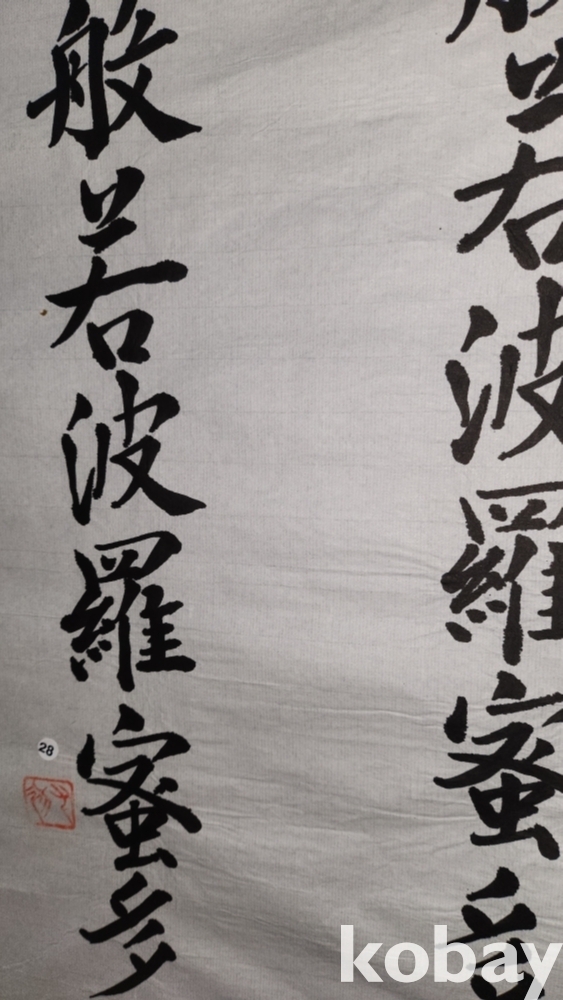 若波羅蜜
般若波羅蜜多
28
kobay